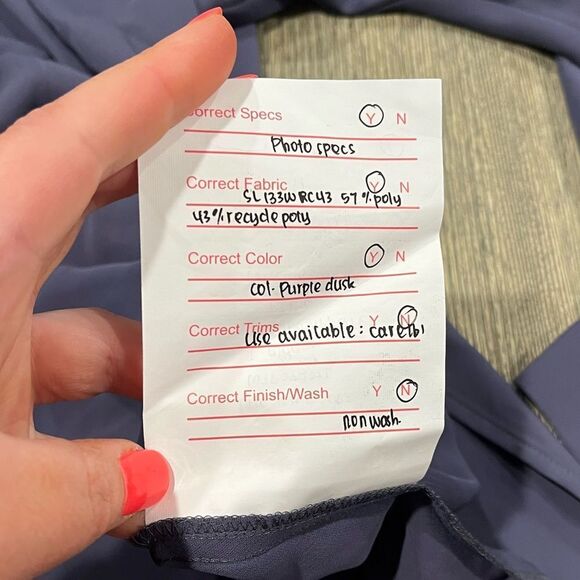 Correct Specs Y N
Photo specs
Correct Fabric Y N
SL133W RC43 57% poly
43% recycle poly
Correct Color Y N
col. Purple dusk
Correct Trims Y N
Use available :
Correct Finish/Wash Y N
non wash